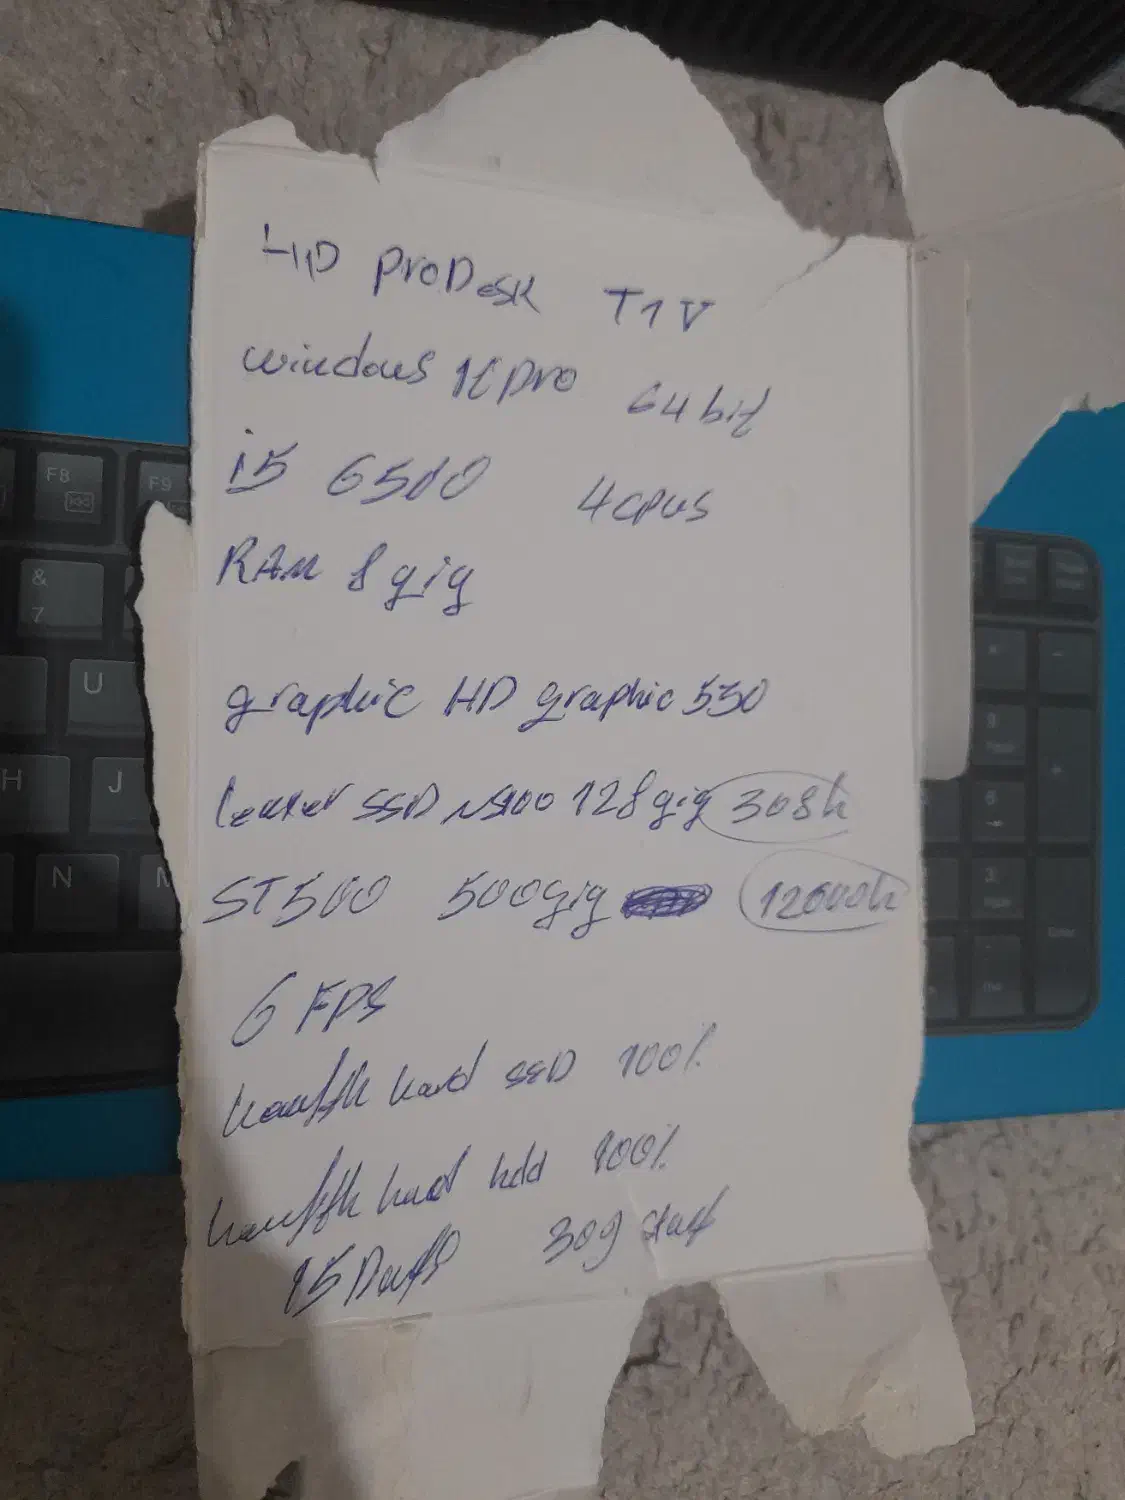 HP ProDesk T1V
windows 10 pro 64 bit
i5 6500 4 cpus
RAM 8 gig
graphic HD graphic 530
lexar SSD NS100 128 gig 308h
ST500 500 gig 12000h
6 FPS
health hard SSD 100%
health hard hdd 100%
15 Days 309 start
F8
F9
&
7
U
H
J
N
M